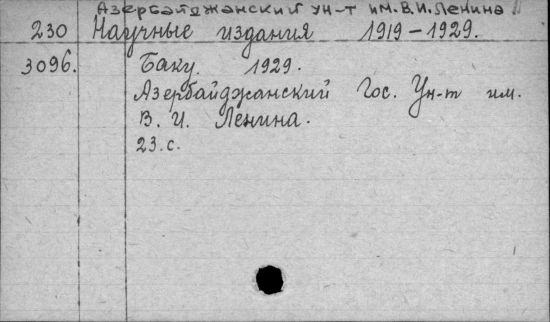 Азербайджанский ун-т им. В. И. Ленина
230 Научные издания 1919-1929.
3096. Баку. 1929.
Азербайджанский Гос. Ун-т им.
В. И. Ленина.
23.с.